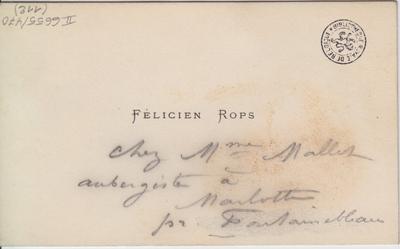 II 6655/470
(112)
FÉLICIEN ROPS
chez Mme Mallet
aubergiste à
Marlotte
pr Fontainebleau